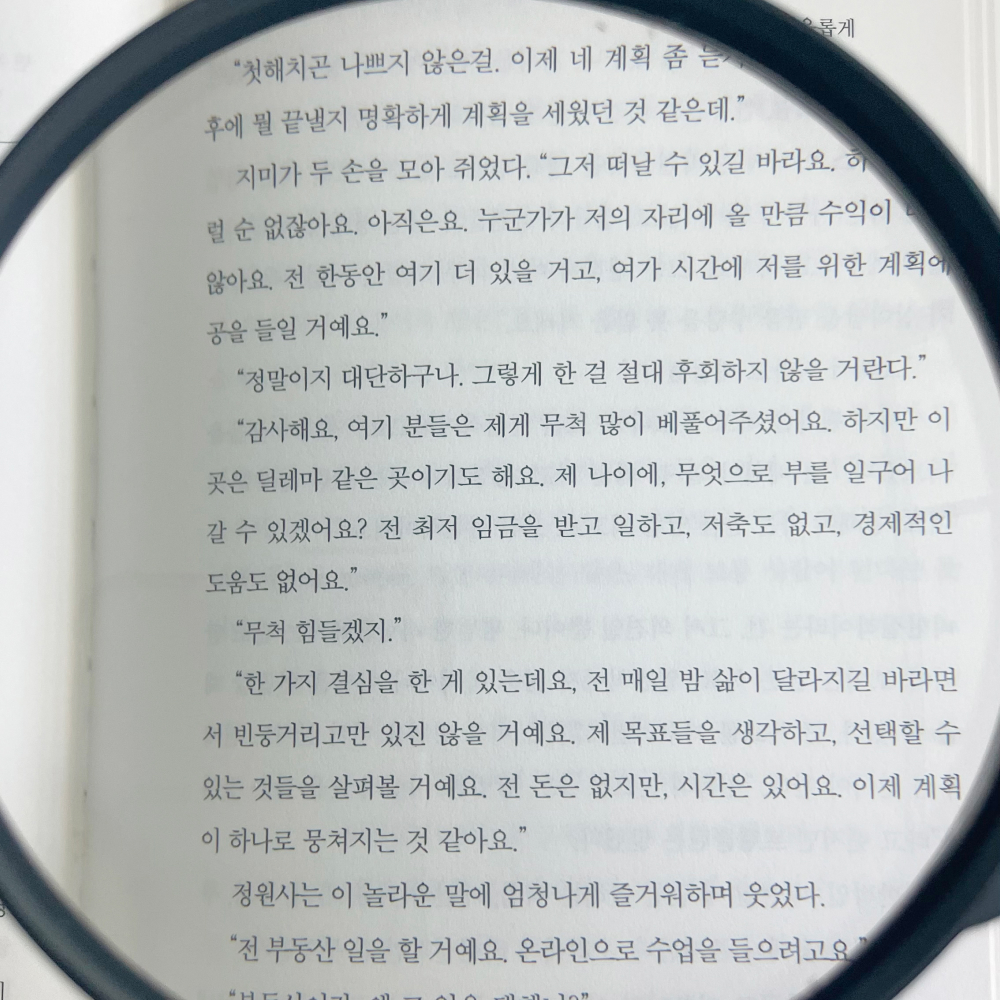 롭게
“첫해치곤 나쁘지 않은걸. 이제 네 계획 좀
후에 뭘 끝낼지 명확하게 계획을 세웠던 것 같은데.”
지미가 두 손을 모아 쥐었다. “그저 떠날 수 있길 바라요.
럴 순 없잖아요. 아직은요. 누군가가 저의 자리에 올 만큼 수익이
않아요. 전 한동안 여기 더 있을 거고, 여가 시간에 저를 위한 계획에
공을 들일 거예요.”
“정말이지 대단하구나. 그렇게 한 걸 절대 후회하지 않을 거란다.”
“감사해요, 여기 분들은 제게 무척 많이 베풀어주셨어요. 하지만 이
곳은 딜레마 같은 곳이기도 해요. 제 나이에, 무엇으로 부를 일구어 나
갈 수 있겠어요? 전 최저 임금을 받고 일하고, 저축도 없고, 경제적인
도움도 없어요.”
“무척 힘들겠지.”
“한 가지 결심을 한 게 있는데요, 전 매일 밤 삶이 달라지길 바라면
서 빈둥거리고만 있진 않을 거예요. 제 목표들을 생각하고, 선택할 수
있는 것들을 살펴볼 거예요. 전 돈은 없지만, 시간은 있어요. 이제 계획
이 하나로 뭉쳐지는 것 같아요.”
정원사는 이 놀라운 말에 엄청나게 즐거워하며 웃었다.
“전 부동산 일을 할 거예요. 온라인으로 수업을 들으려고요.”